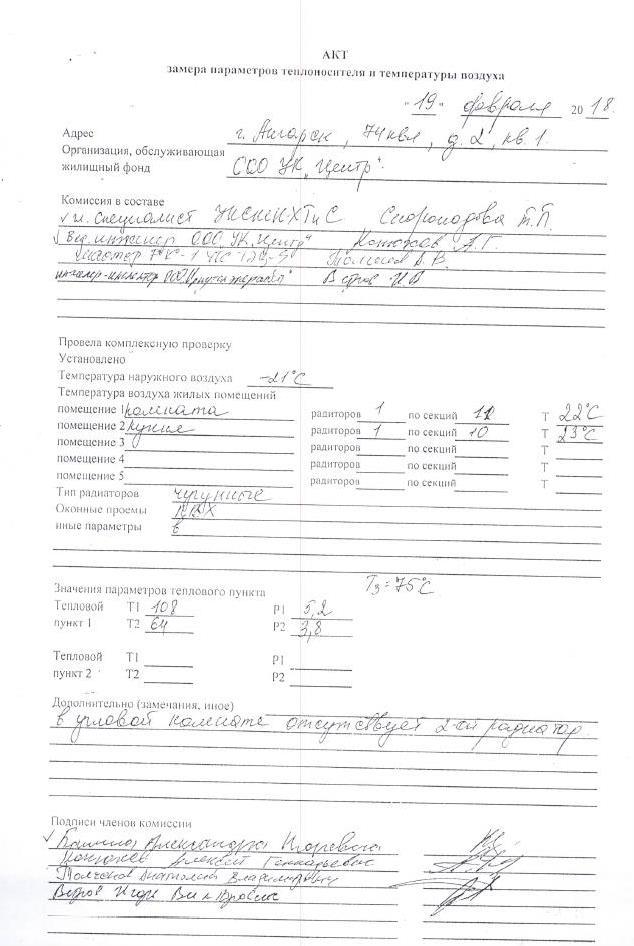 АКТ
замера параметров теплоносителя и температуры воздуха
"19" февраля 2018.
Адрес г. Ангарск, 74 квл, д. 2, кв 1.
Организация, обслуживающая
жилищный фонд ООО УК "Центр".
Комиссия в составе
√ специалист
√ Вед. инженер ООО УК "Центр" А.Г
В.
инженер-инспектор ООО
Провела комплексную проверку
Установлено
Температура наружного воздуха -21°С
Температура воздуха жилых помещений
помещение 1 комната радиторов 1 по секций 11 Т 22°С
помещение 2 кухня радиторов 1 по секций 10 Т 23°С
помещение 3 радиторов по секций Т
помещение 4 радиторов по секций Т
помещение 5 радиторов по секций Т
Тип радиаторов чугунные
Оконные проемы ПВХ
иные параметры
Значения параметров теплового пункта Т3 = 75°С
Тепловой Т1 108 Р1 5,2
пункт 1 Т2 64 Р2 3,8
Тепловой Т1 Р1
пункт 2 Т2 Р2
Дополнительно (замечания, иное)
в угловой комнате отсутствует 2-ой радиатор.
Подписи членов комиссии
√ Александра Игоревна
Алексей Геннадьевич
Анатолий Владимирович
Игорь